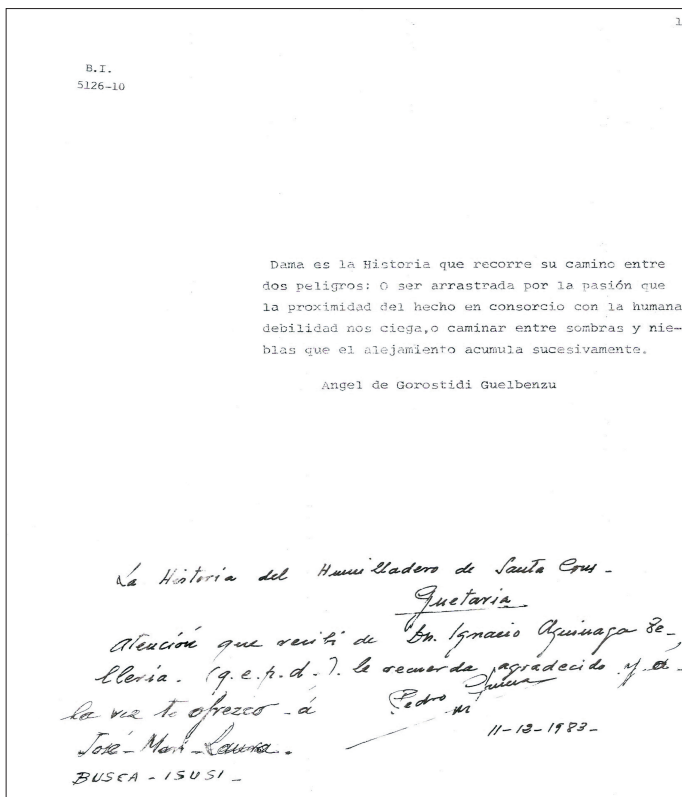 1
B.I.
5126-10
Dama es la Historia que recorre su camino entre
dos peligros: O ser arrastrada por la pasión que
la proximidad del hecho en consorcio con la humana
debilidad nos ciega,o caminar entre sombras y nie-
blas que el alejamiento acumula sucesivamente.
Angel de Gorostidi Guelbenzu
La Historia del Humilladero de Santa Cruz -
Guetaria
Atención que recibí de Dn. Ignacio Aguinaga Be-
llería. (q.e.p.d.). le recuerda agradecido y a -
la vez te ofrezco - á Pedro
José - Mari - Laura.
11-12-1983-
BUSCA - ISUSI -